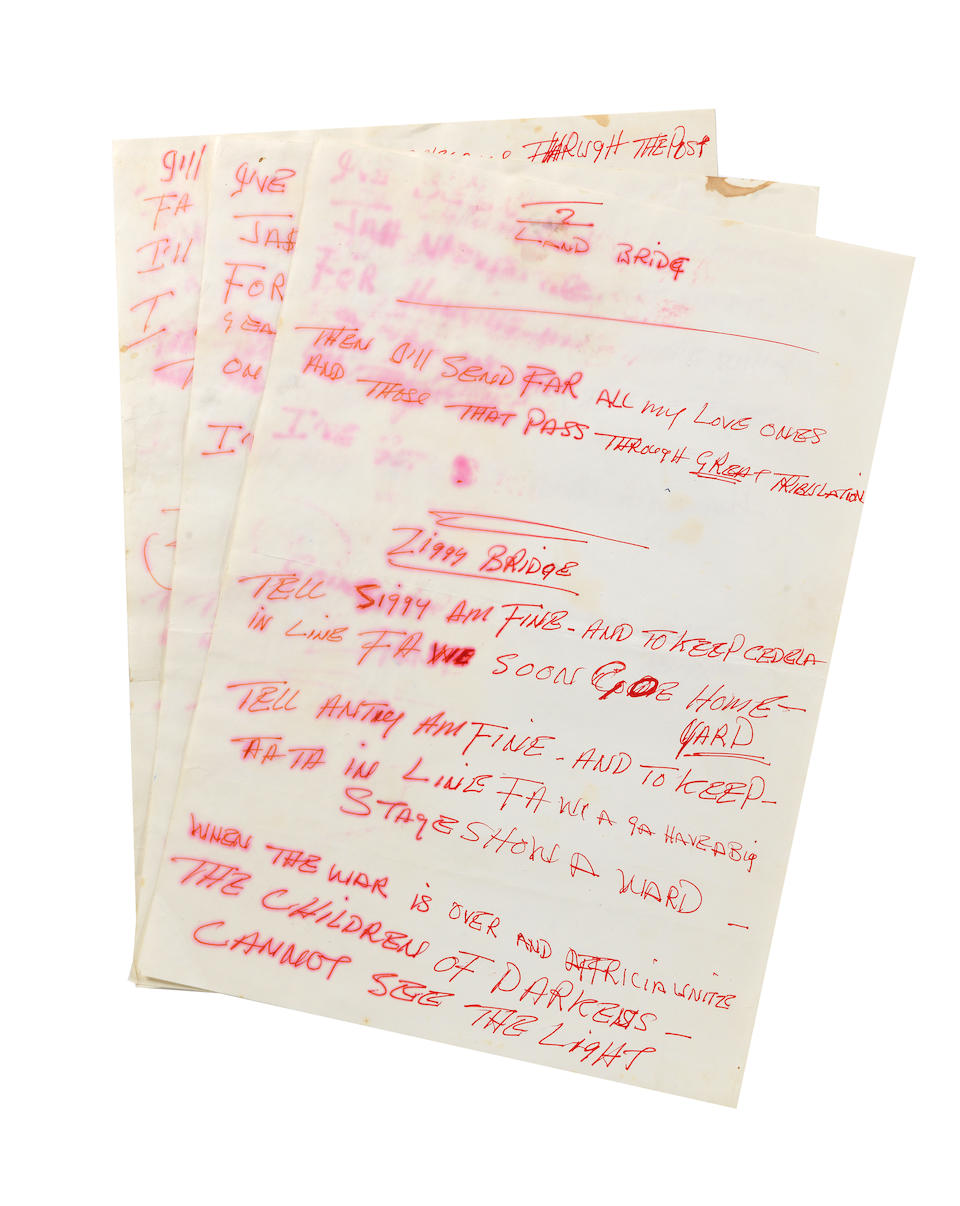 THROUGH THE POST
I'll
FA
I'll
I
I'VE
JAS
FOR
YEA
ON
I'
2
LAND BRIDG
THEN I'll SEND FAR ALL my LOVE ONES
AND THOSE THAT PASS THROUGH GREAT TRIBISLATION
Ziggy BRIDGE
TELL SIGGY AM FINE - AND TO KEEP CEDELA
IN LINE FA WE SOON COME HOME -
YARD
TELL ANTNY AM FINE - AND TO KEEP -
AATA IN LINE FA WI A GA HAVE A BIG
STAGE SHOW A YARD -
WHEN THE WAR IS OVER AND AFFRICIA UNITE
THE CHILDREN OF DARKENSS -
CANNOT SEE THE LIGHT